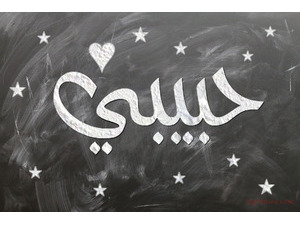 حبيبي